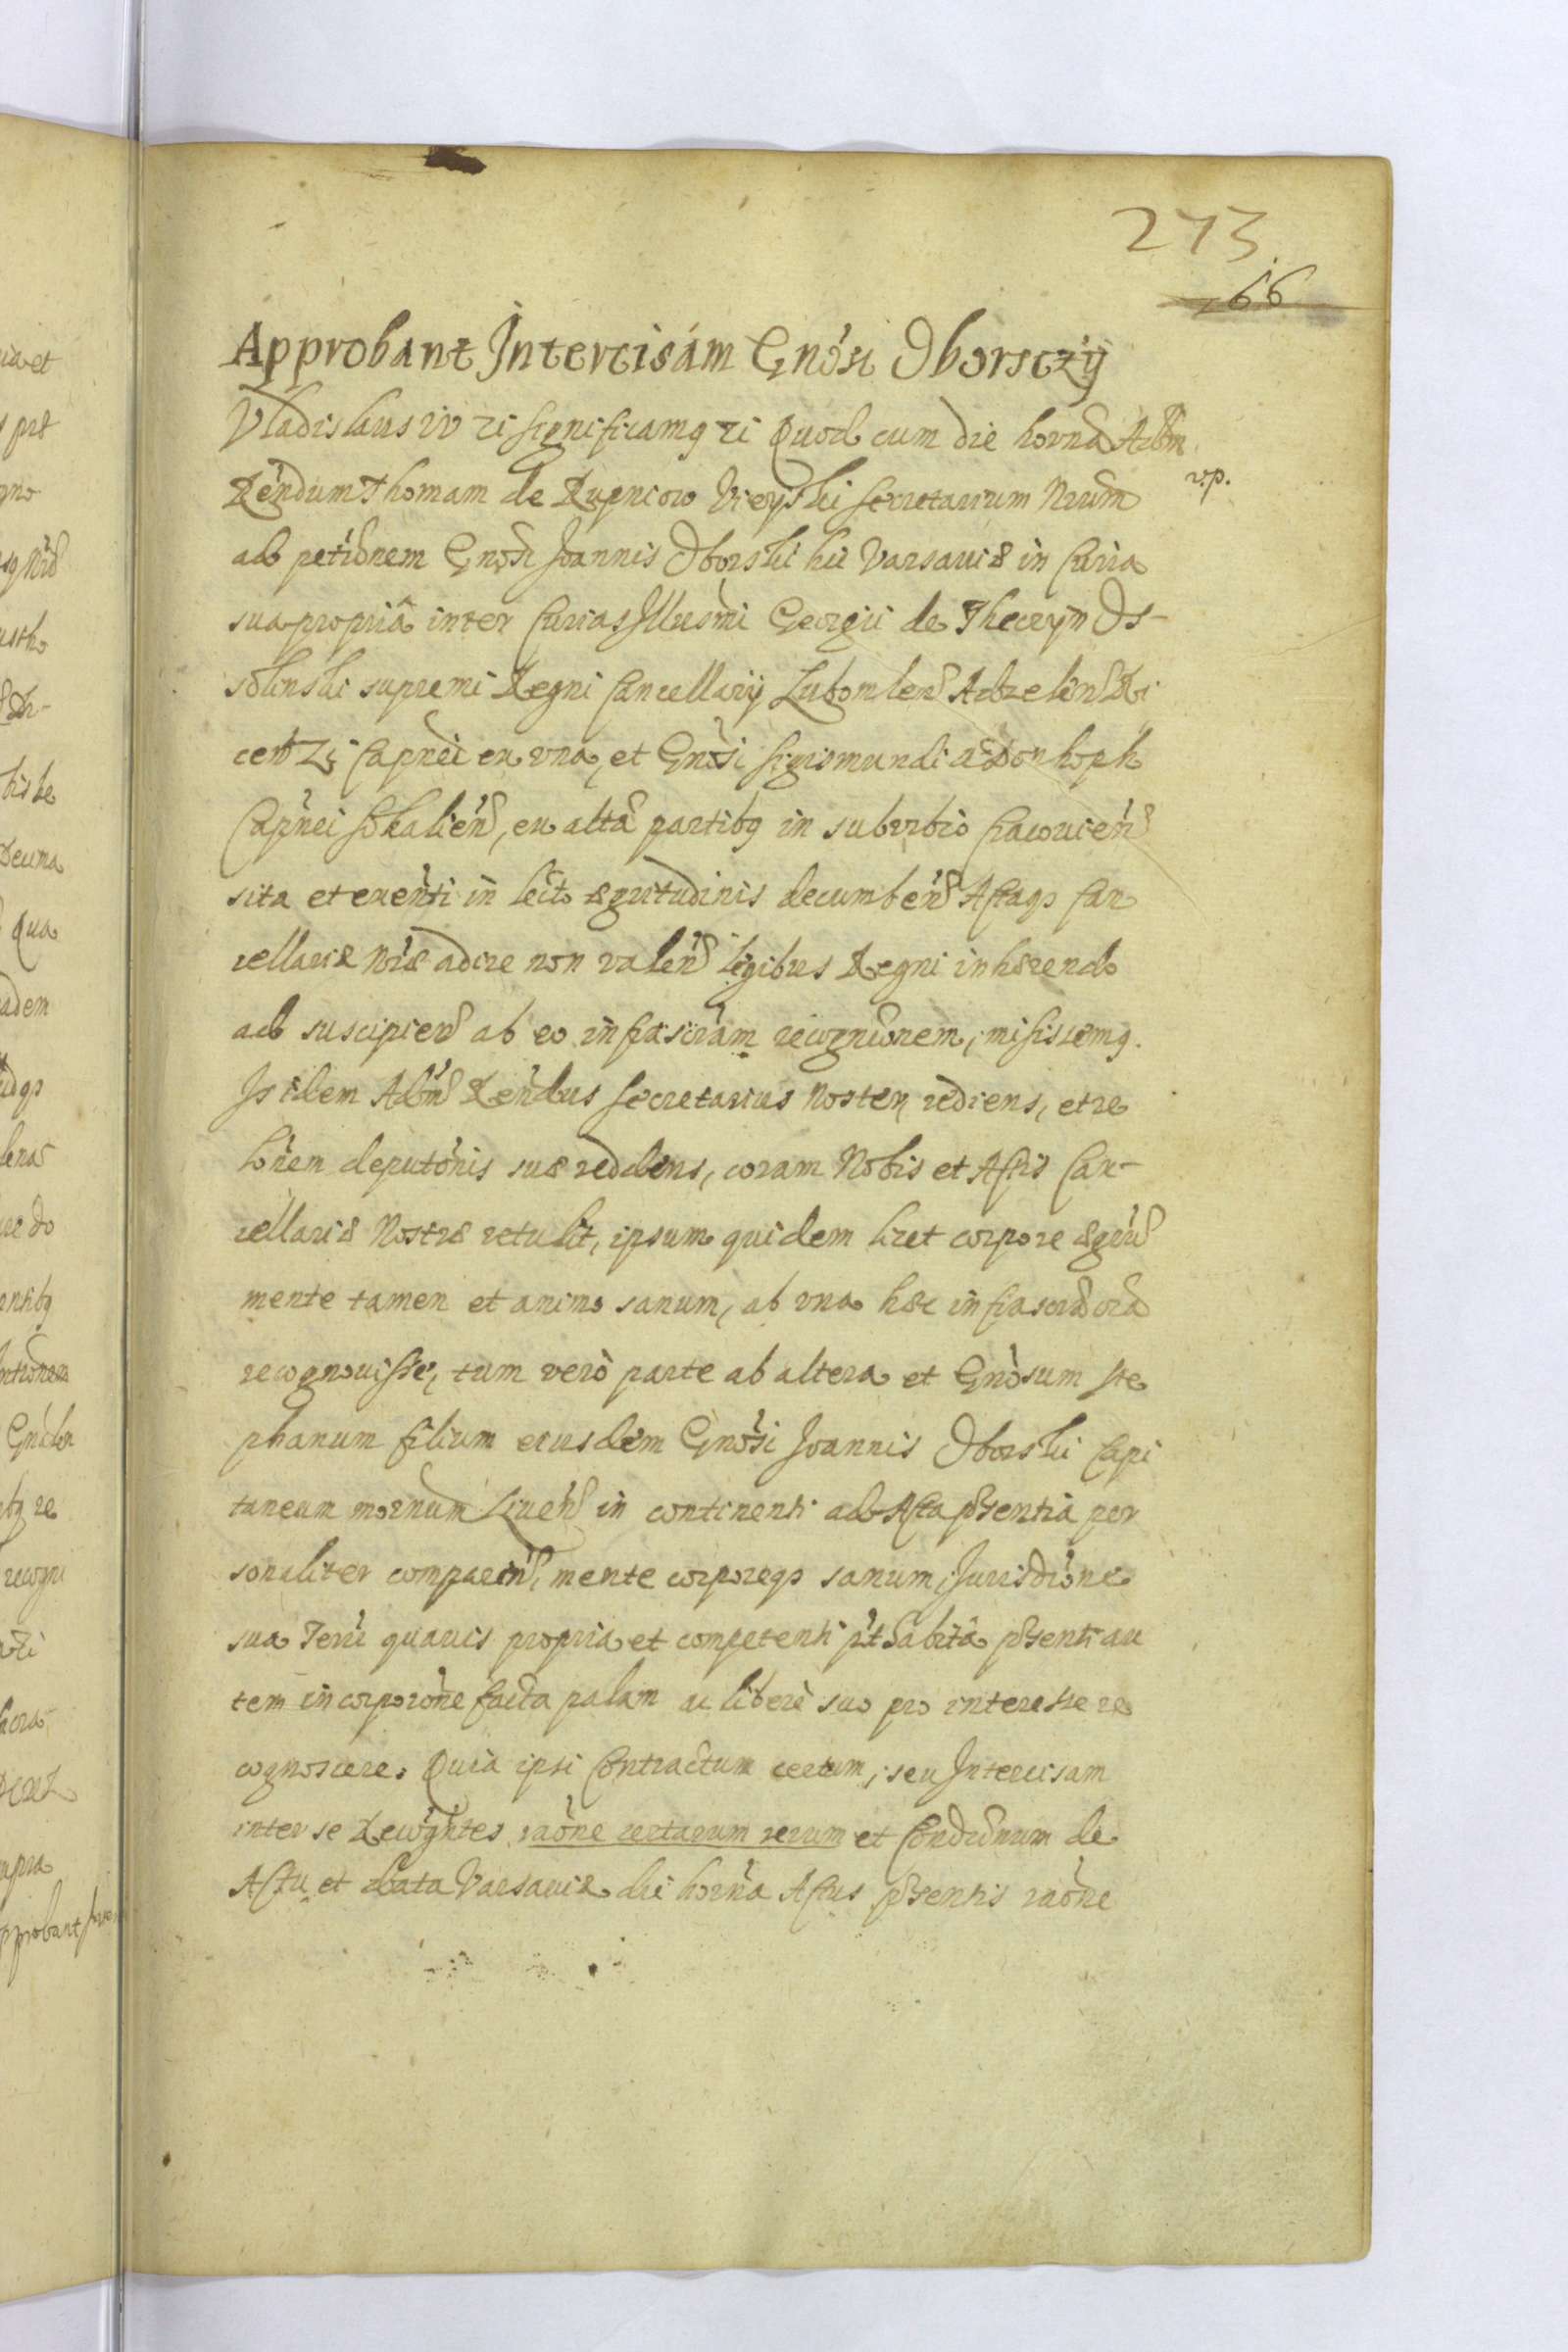 273.
66
Approbant Intercisam Gnosi Oborsczy
Vladislaus IV zi significamq zi Quod cum die horna Adm
Rendum Thomam de Rupniow Vieyski Secretarium Nrum
v.p.
ad petionem Gnosi Joannis Oborski hic Varsaviæ in Curia
sua propriâ inter Curias Illusmi Georgii de Theczyn Os-
solinski supremi Regni Cancellarij Lubomlen Adzelen
cen Zi Capnei ex una, et Gnosi Sigismundi a Donhoph
Capnei Sokalien, ex altâ partibq in suburbio Cracovien
sita et exenti in lecto ægritudinis decumben Actaqz Can
cellariæ Nræ adire non valen legibus Regni inhærendo
ad suscipien ab eo infrascram recognionem, misissemq.
Is idem Adm Rendus Secretarius Noster, rediens, et re
lonem deputonis suæ reddens, coram Nobis et Actis Can-
cellariæ Nostræ retulit, ipsum quidem licet corpore ægru
mente tamen et animo sanum, ab una hæc infrascra ora
recognovisse, tum verò parte ab altera et Gnosum Ste
phanum filium eiusdem Gnosi Joannis Oborski Capi
taneum mornum Liven in continenti ad Acta præsentia per
sonaliter comparen, mente corporeqz sanum, Jurisdione
sua Terri quavis propria et competenti pt habitâ præsenti au
tem incorporone facta palam ac liberè suo pro interesse re
cognoscere. Quia ipsi Contractum certum, seu Intercisam
inter se Recogntes raone certarum rerum et Condionum de
Actu et data Varsaviæ die horna Actus præsentis raone